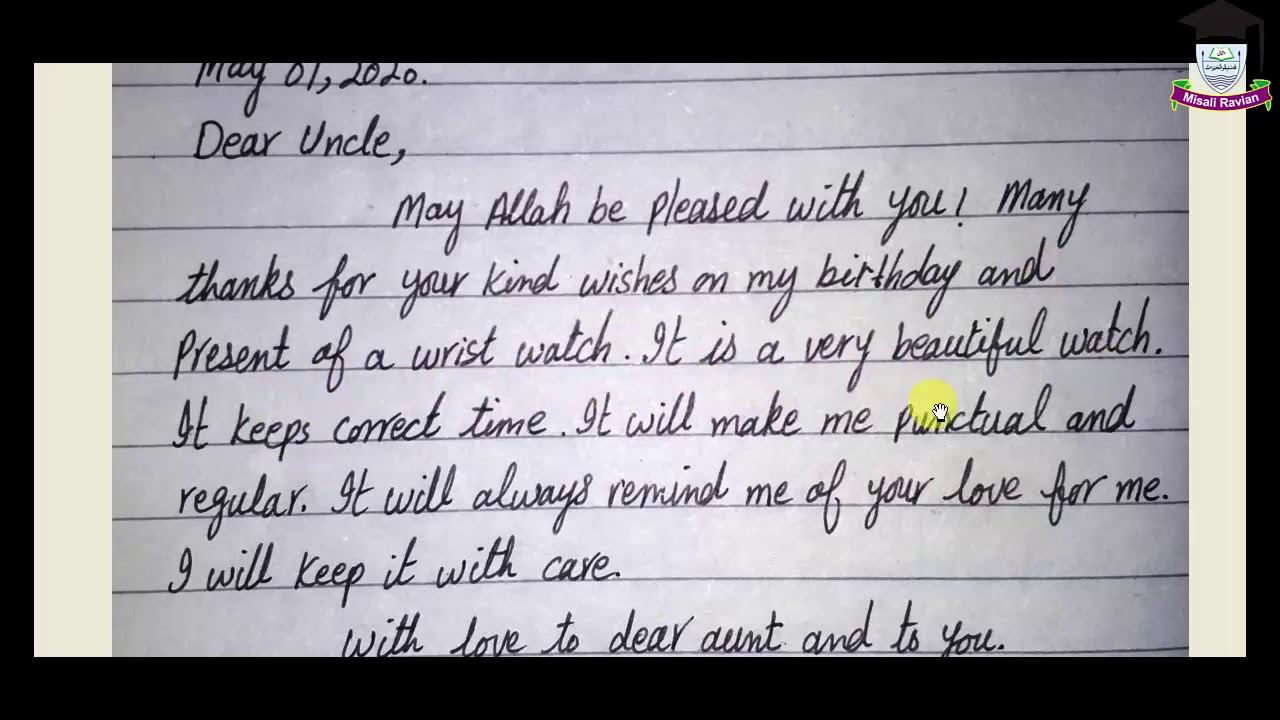 May 01, 2020.
Dear Uncle,
May Allah be pleased with you! Many
thanks for your kind wishes on my birthday and
Present of a wrist watch. It is a very beautiful watch.
It keeps correct time. It will make me punctual and
regular. It will always remind me of your love for me.
I will keep it with care.
with love to dear aunt and to you.
Misali Ravian